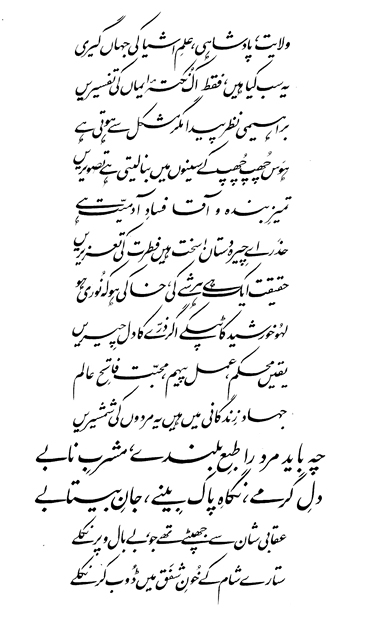 ولایت، پادشاہی، علمِ اشیا کی جہاں گیری
یہ سب کیا ہیں، فقط اک نکتۂ ایماں کی تفسیریں
براہیمی نظر پیدا مگر مشکل سے ہوتی ہے
ہوس چھپ چھپ کے سینوں میں بنا لیتی ہے تصویریں
تمیزِ بندہ و آقا فسادِ آدمیت ہے
حذر اے چیرہ دستاں! سخت ہیں فطرت کی تعزیریں
حقیقت ایک ہے ہر شے کی، خاکی ہو کہ نوری ہو
لہو خورشید کا ٹپکے اگر ذرے کا دل چیریں
یقیں محکم، عمل پیہم، محبت فاتحِ عالم
جہادِ زندگانی میں ہیں یہ مردوں کی شمشیریں
چہ باید مرد را طبعِ بلندے، مشربِ نابے
دلِ گرمے، نگاہِ پاک بینے، جانِ بیتابے
عقابی شان سے جھپٹے تھے جو، بے بال و پر نکلے
ستارے شام کے خونِ شفق میں ڈوب کر نکلے